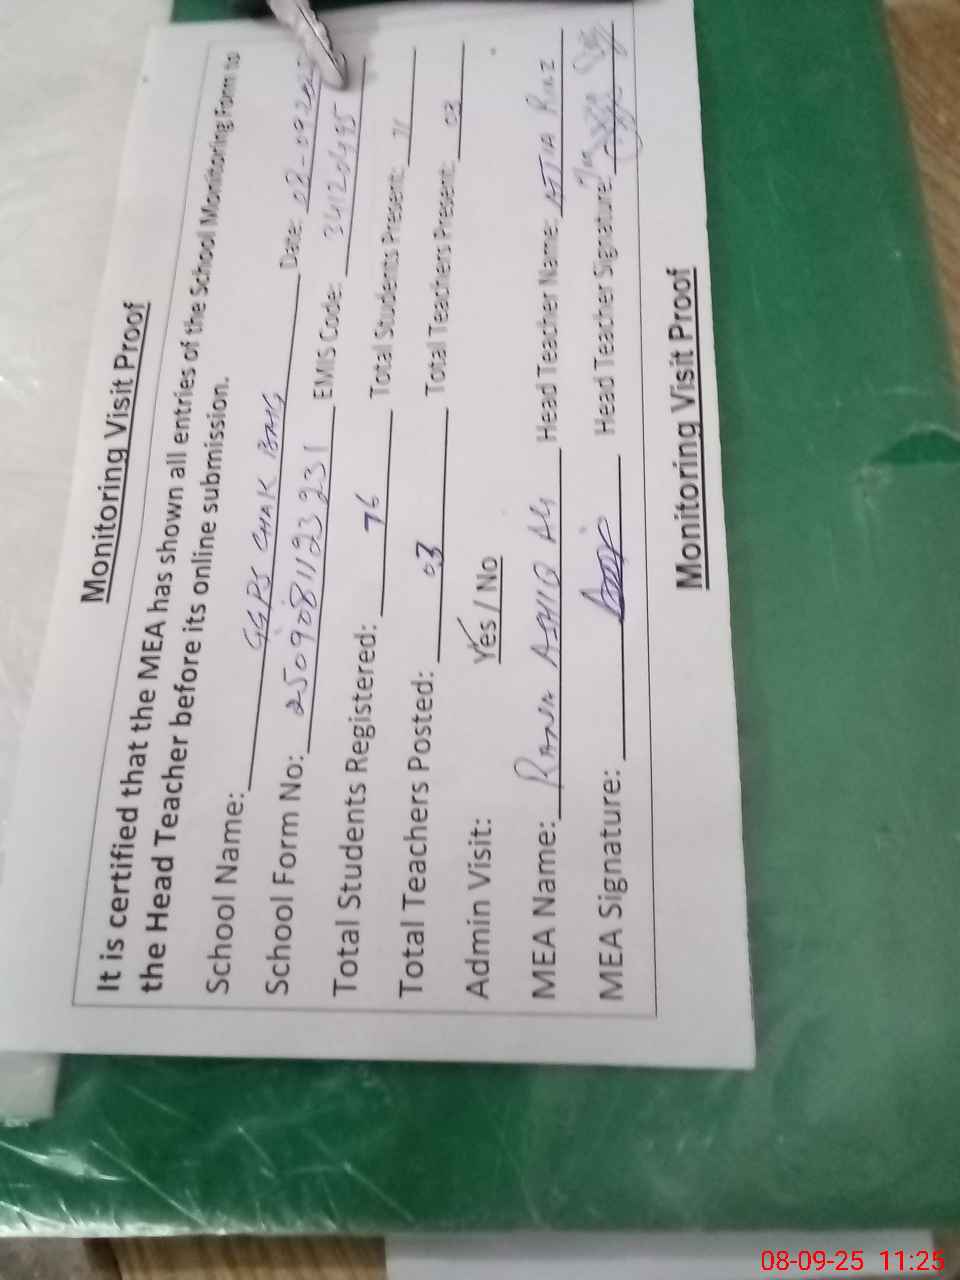 Monitoring Visit Proof
It is certified that the MEA has shown all entries of the School Monitoring Form to
the Head Teacher before its online submission.
School Name: GGPS CHAK BAHG Date: 08-09-2025
School Form No: 2509081123231 EMIS Code: 34120495
Total Students Registered: 76 Total Students Present: 71
Total Teachers Posted: 03 Total Teachers Present: 03
Admin Visit: Yes / No
MEA Name: RANA ASHIQ ALI Head Teacher Name:
MEA Signature: Head Teacher Signature:
Monitoring Visit Proof
08-09-25 11:25